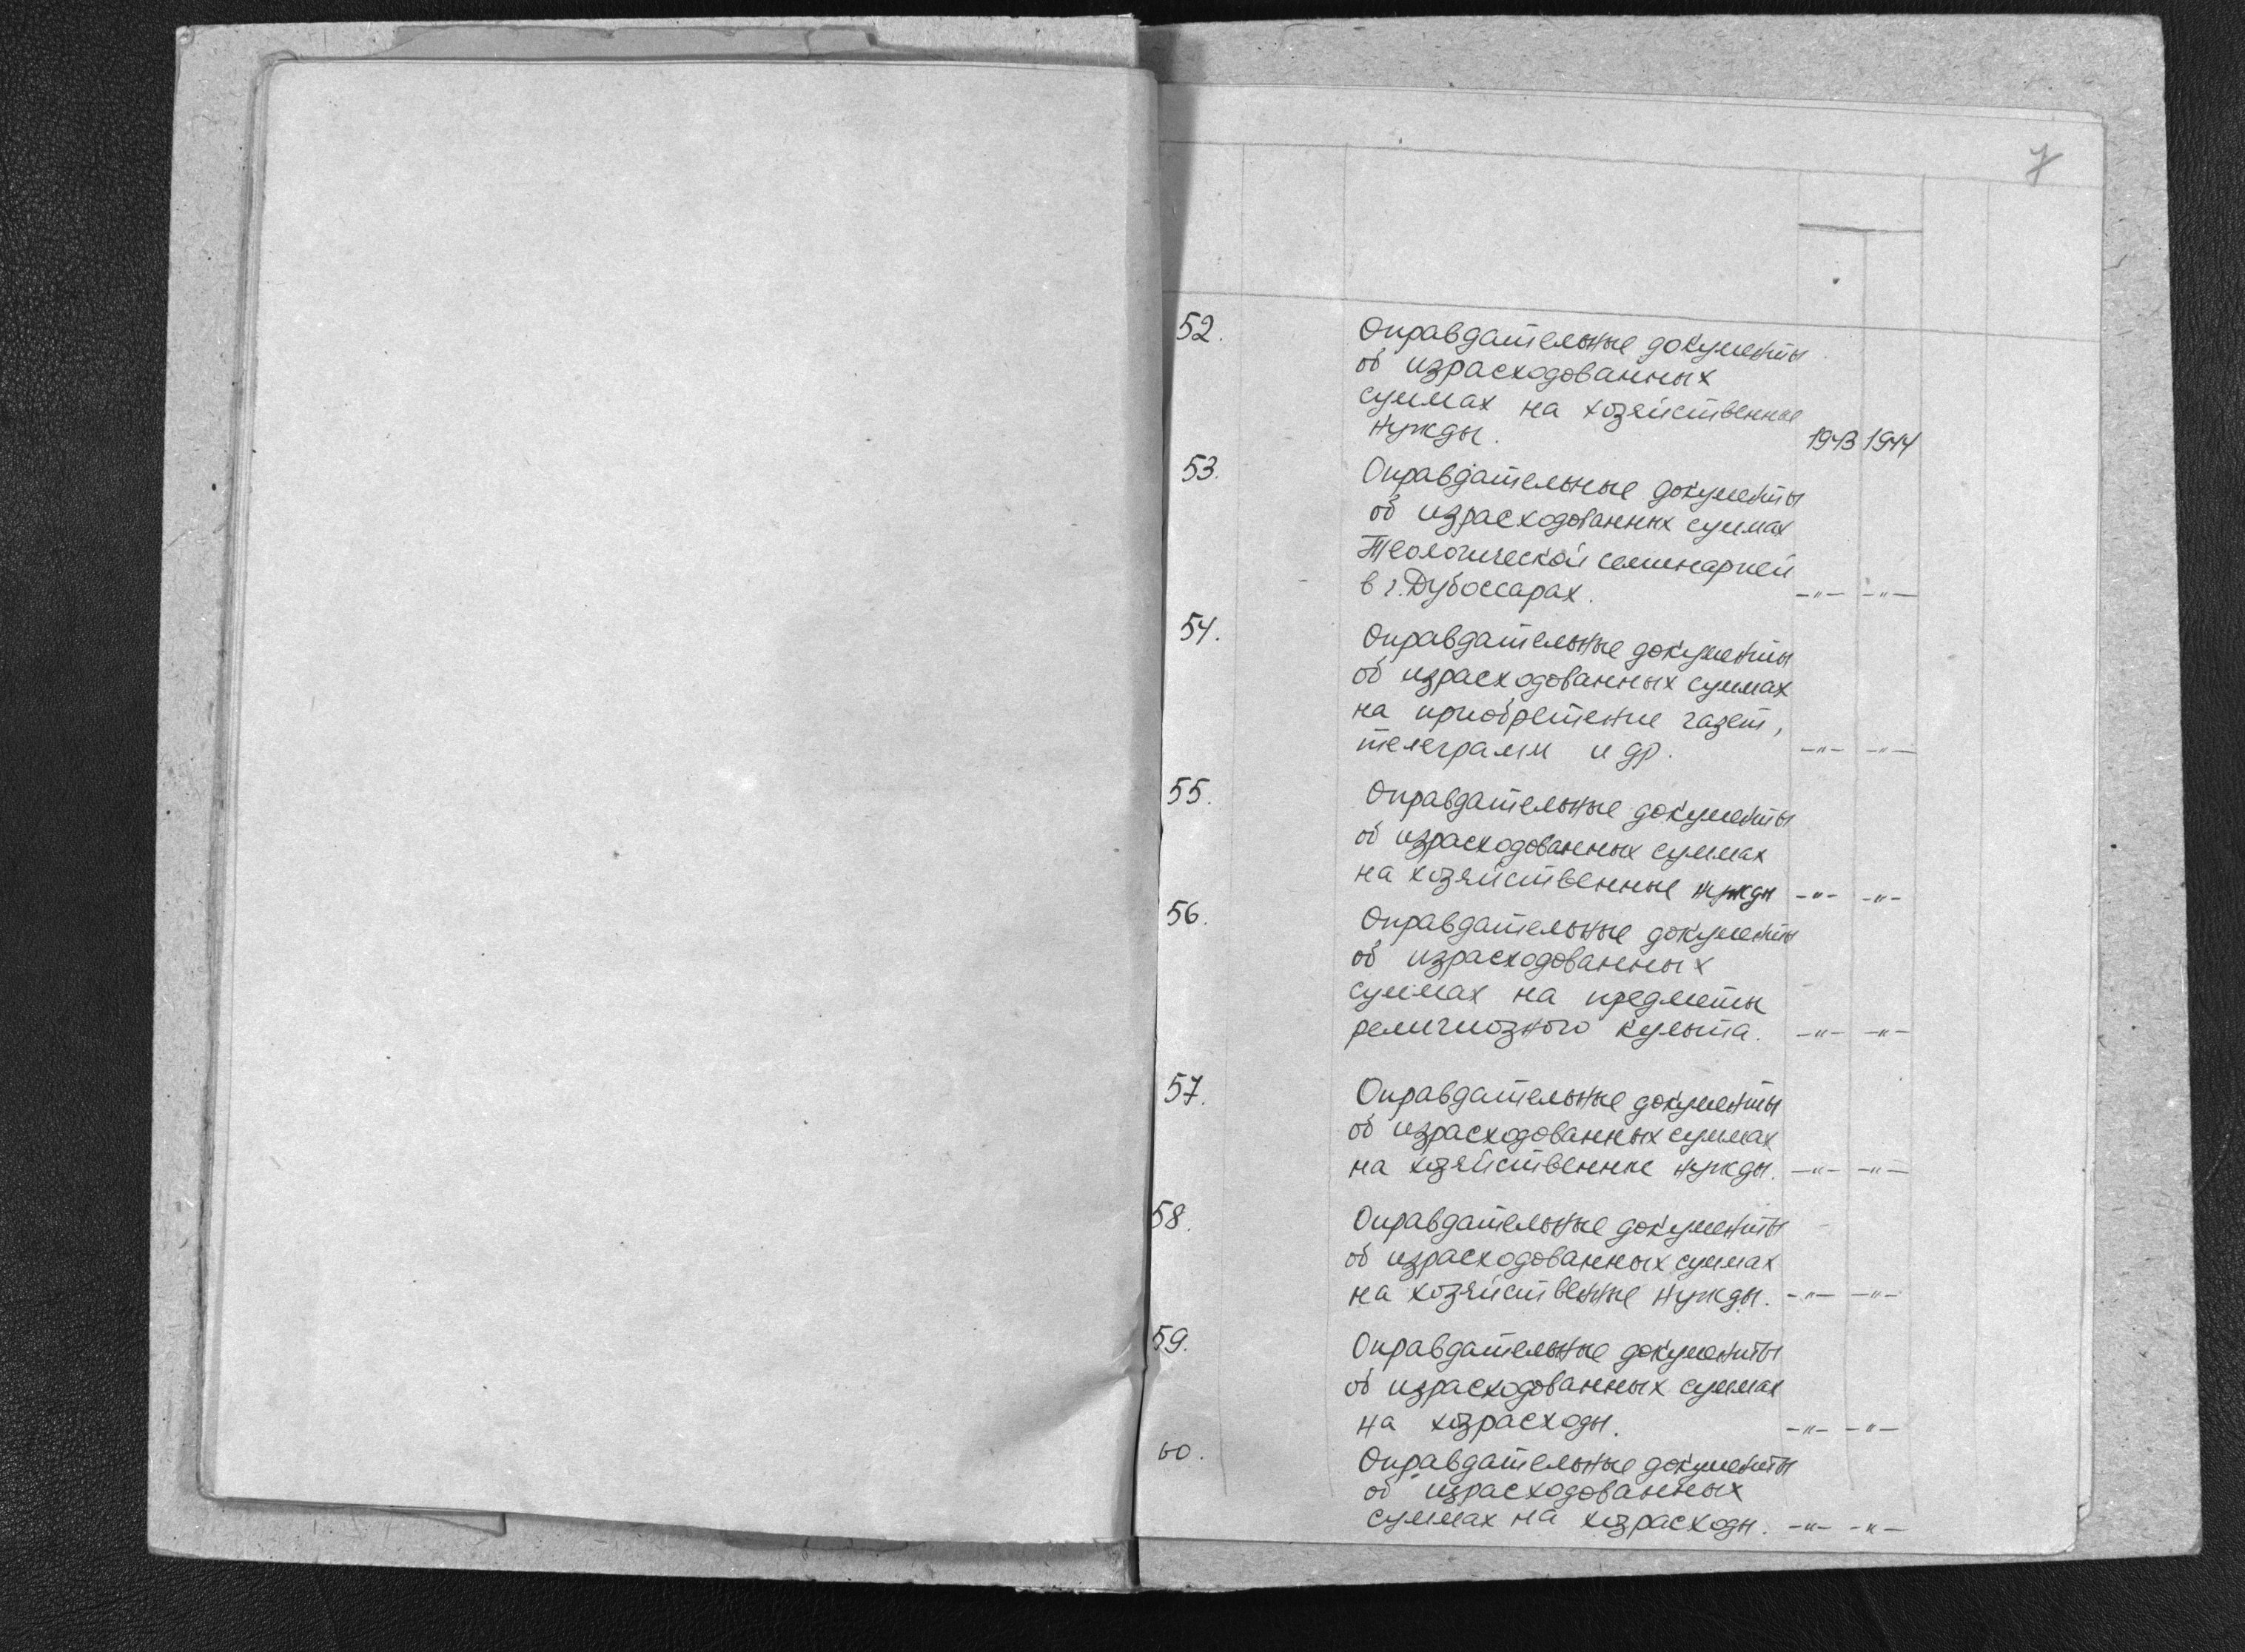 7
52. Оправдательные документы
об израсходованных
суммах на хозяйственные
нужды. 1943 1944
53. Оправдательные документы
об израсходованных суммах
Теологической семинарией
в г. Дубоссарах. -"- -"-
54. Оправдательные документы
об израсходованных суммах
на приобретение газет,
телеграмм и др. -"- -"-
55. Оправдательные документы
об израсходованных суммах
на хозяйственные нужды -"- -"-
56. Оправдательные документы
об израсходованных
суммах на предметы
религиозного культа. -"- -"-
57. Оправдательные документы
об израсходованных суммах
на хозяйственные нужды. -"- -"-
58. Оправдательные документы
об израсходованных суммах
на хозяйственные нужды. -"- -"-
59. Оправдательные документы
об израсходованных суммах
на хозрасходы. -"- -"-
60. Оправдательные документы
об израсходованных
суммах на хозрасходы. -"- -"-